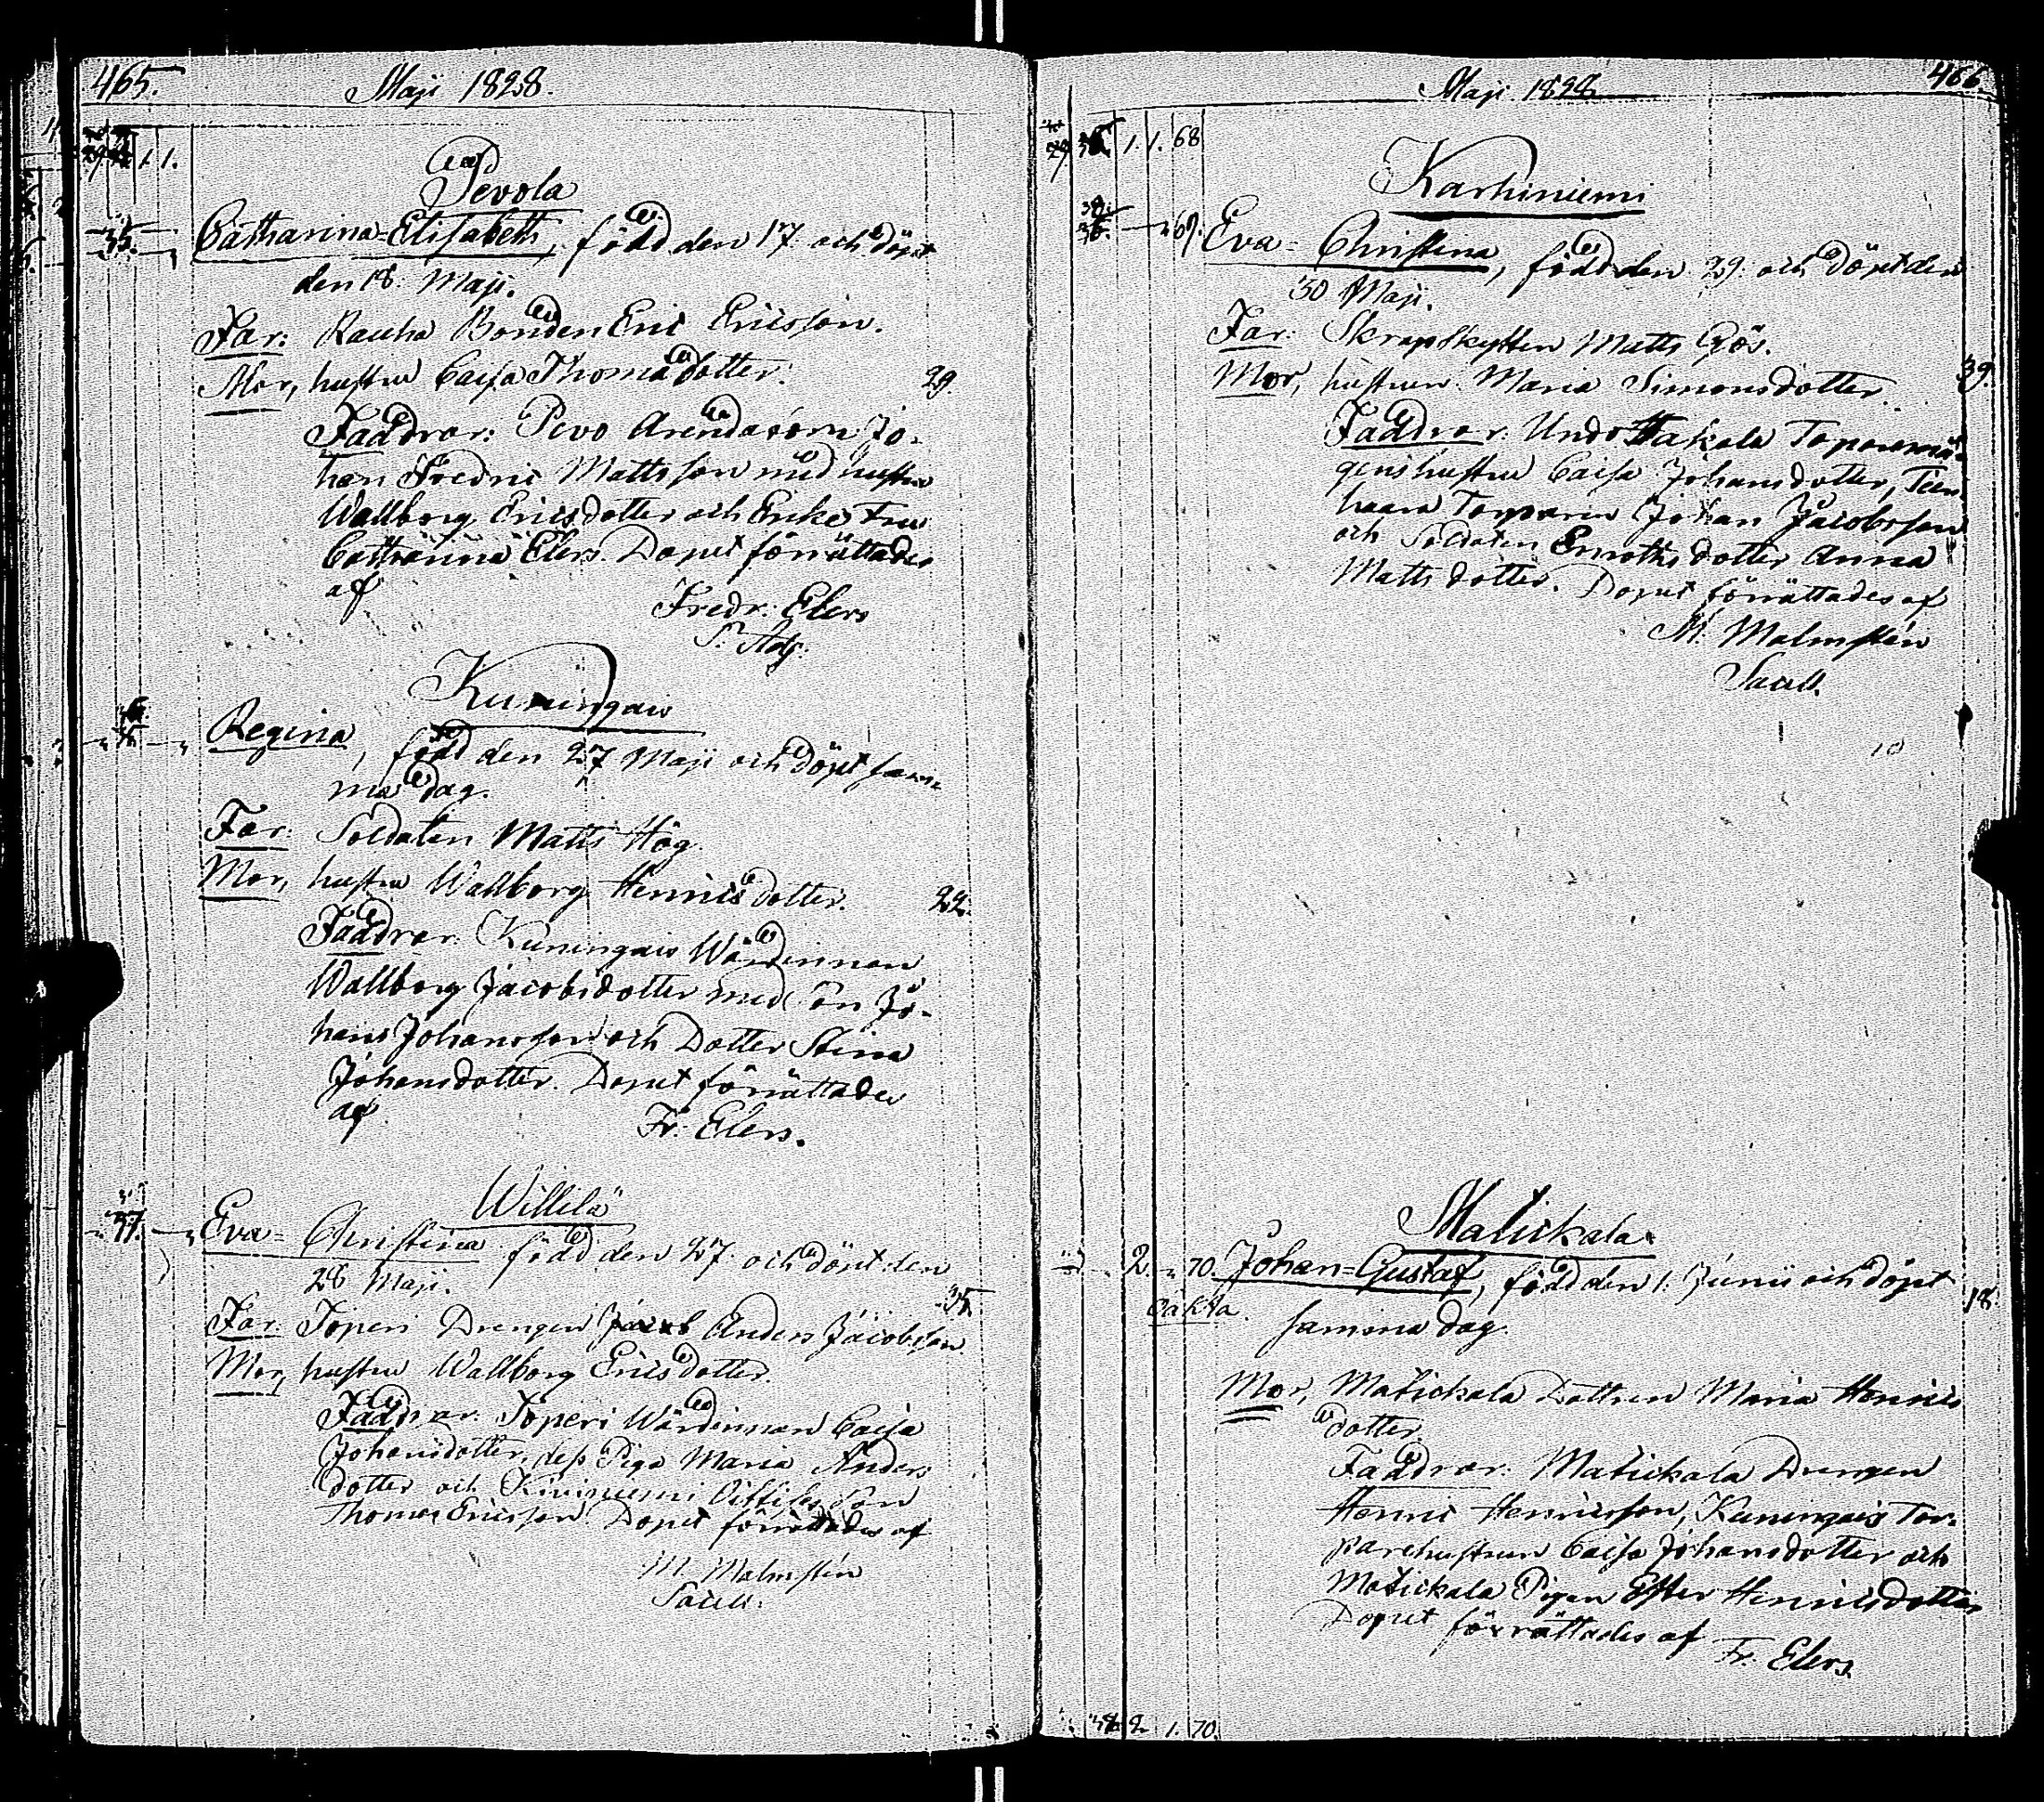 465.
Maji 1828.
1. 1.
Pevola
35. Catharina-Elisabeth, född den 17 och döpt
den 18. Maji.
Far: Rauha Bonden Eric Ericsson.
Mor, hustru Caisa Thomædotter. 29.
Faddrar: Pevo Arendatorn Jo-
han Fredric Mattsson med hustru
Wallborg Ericsdotter och Enke Fru
Catharina Elers. Dopet förrättades
af
Fredr. Elers
P. Adj.
Kuningais
Regina, född den 27 Maji och döpt sam-
ma dag.
Far: Soldaten Matts Hög.
Mor, hustru Wallborg Henricsdotter. 22.
Faddrar: Kuningais Wärdinnan
Wallborg Jacobsdotter med Son Jo-
hans Johansson och Dotter Stina
Johansdotter. Dopet förrättades
af
Fr. Elers.
Willilä
37. Eva-Christina född den 27. och döpt den
28 Maji. 35.
Far: Soperi Drengen Anders Jacobsson
Mor, hustru Wallborg Ericsdotter.
Faddrar: Soperi Wärdinnan Caisa
Johansdotter, dess Piga Maria Anders
dotter och Kiviniemi Son
Thomas Ericsson Dopet förrättades af
M. Malmstén
Sacell.
466.
Maji 1828
1. 1. 68
Karhiniemi
69. Eva-Christina, född den 29. och döpt den
30 Maji.
Far: Skarpskytten Matts Gös.
Mor, hustrun Maria Simonsdotter. 39.
Faddrar: Undo Hakala
hustru Caisa Johansdotter,
Torparen Johan Jacobsson
och Soldaten Enroths dotter Anna
Mattsdotter. Dopet förrättades af
M. Malmstén
Sacell.
Matickala
2. 70. Johan-Gustaf, född den 1. Junii och döpt
oäkta samma dag. 18.
Mor, Matickala Dottren Maria Henrics
dotter.
Faddrar: Matickala Drengen
Henric Henricsson, Kuningais Tor-
parehustrun Caisa Johansdotter och
Matickala Pigan Ester Henricsdotter
Dopet förrättades af
Fr. Elers.
38. 2. 1. 70.